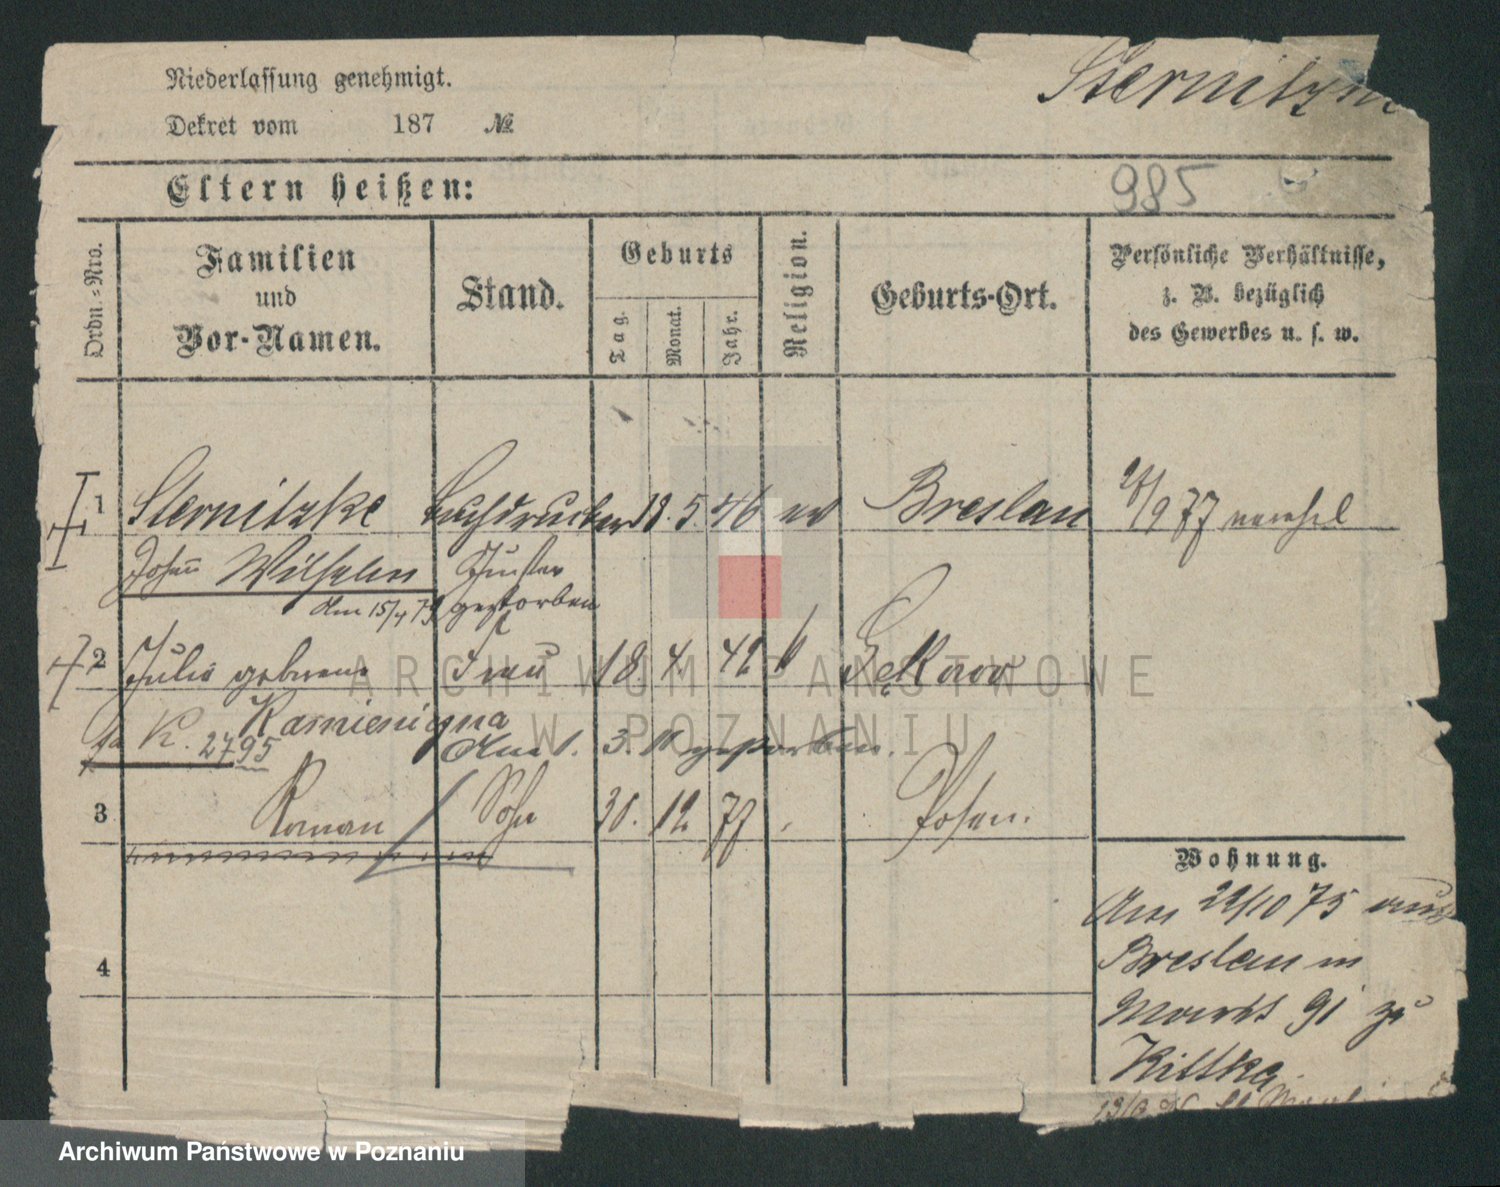 Niederlassung genehmigt.
Sternitzke
Dekret vom 187 №
Eltern heißen:
985
Ordn.=Nro.
Familien
und
Vor-Namen.
Stand.
Geburts
Tag.
Monat.
Jahr.
Religion.
Geburts-Ort.
Persönliche Verhältnisse,
z. B. bezüglich
des Gewerbes u. s. w.
1 Sternitzke Buchdrucker 18. 5. 46 ev Breslau /9 77
Johann Wilhelm
Am 15/4 79 gestorben
2 Julie geborene Frau 18. 4. 42 k
Kamienigna
K. 2795
3. 11 gestorben.
3 Roman Sohn 30. 12 77 Posen.
4
Wohnung.
Am 22/10 75 aus
Breslau in
Markt 91 zu
Kittke
ARCHIWUM PAŃSTWOWE
W POZNANIU
Archiwum Państwowe w Poznaniu